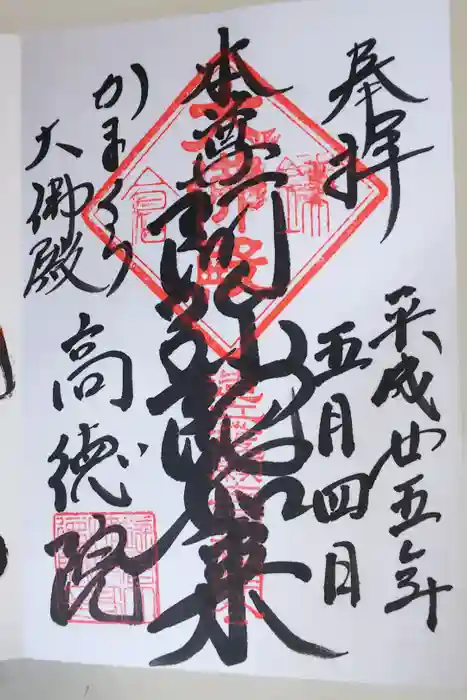 奉拝
平成廿五年
五月四日
本尊阿弥陀如来
かまくら
大佛殿
高徳院
鎌倉
大佛殿